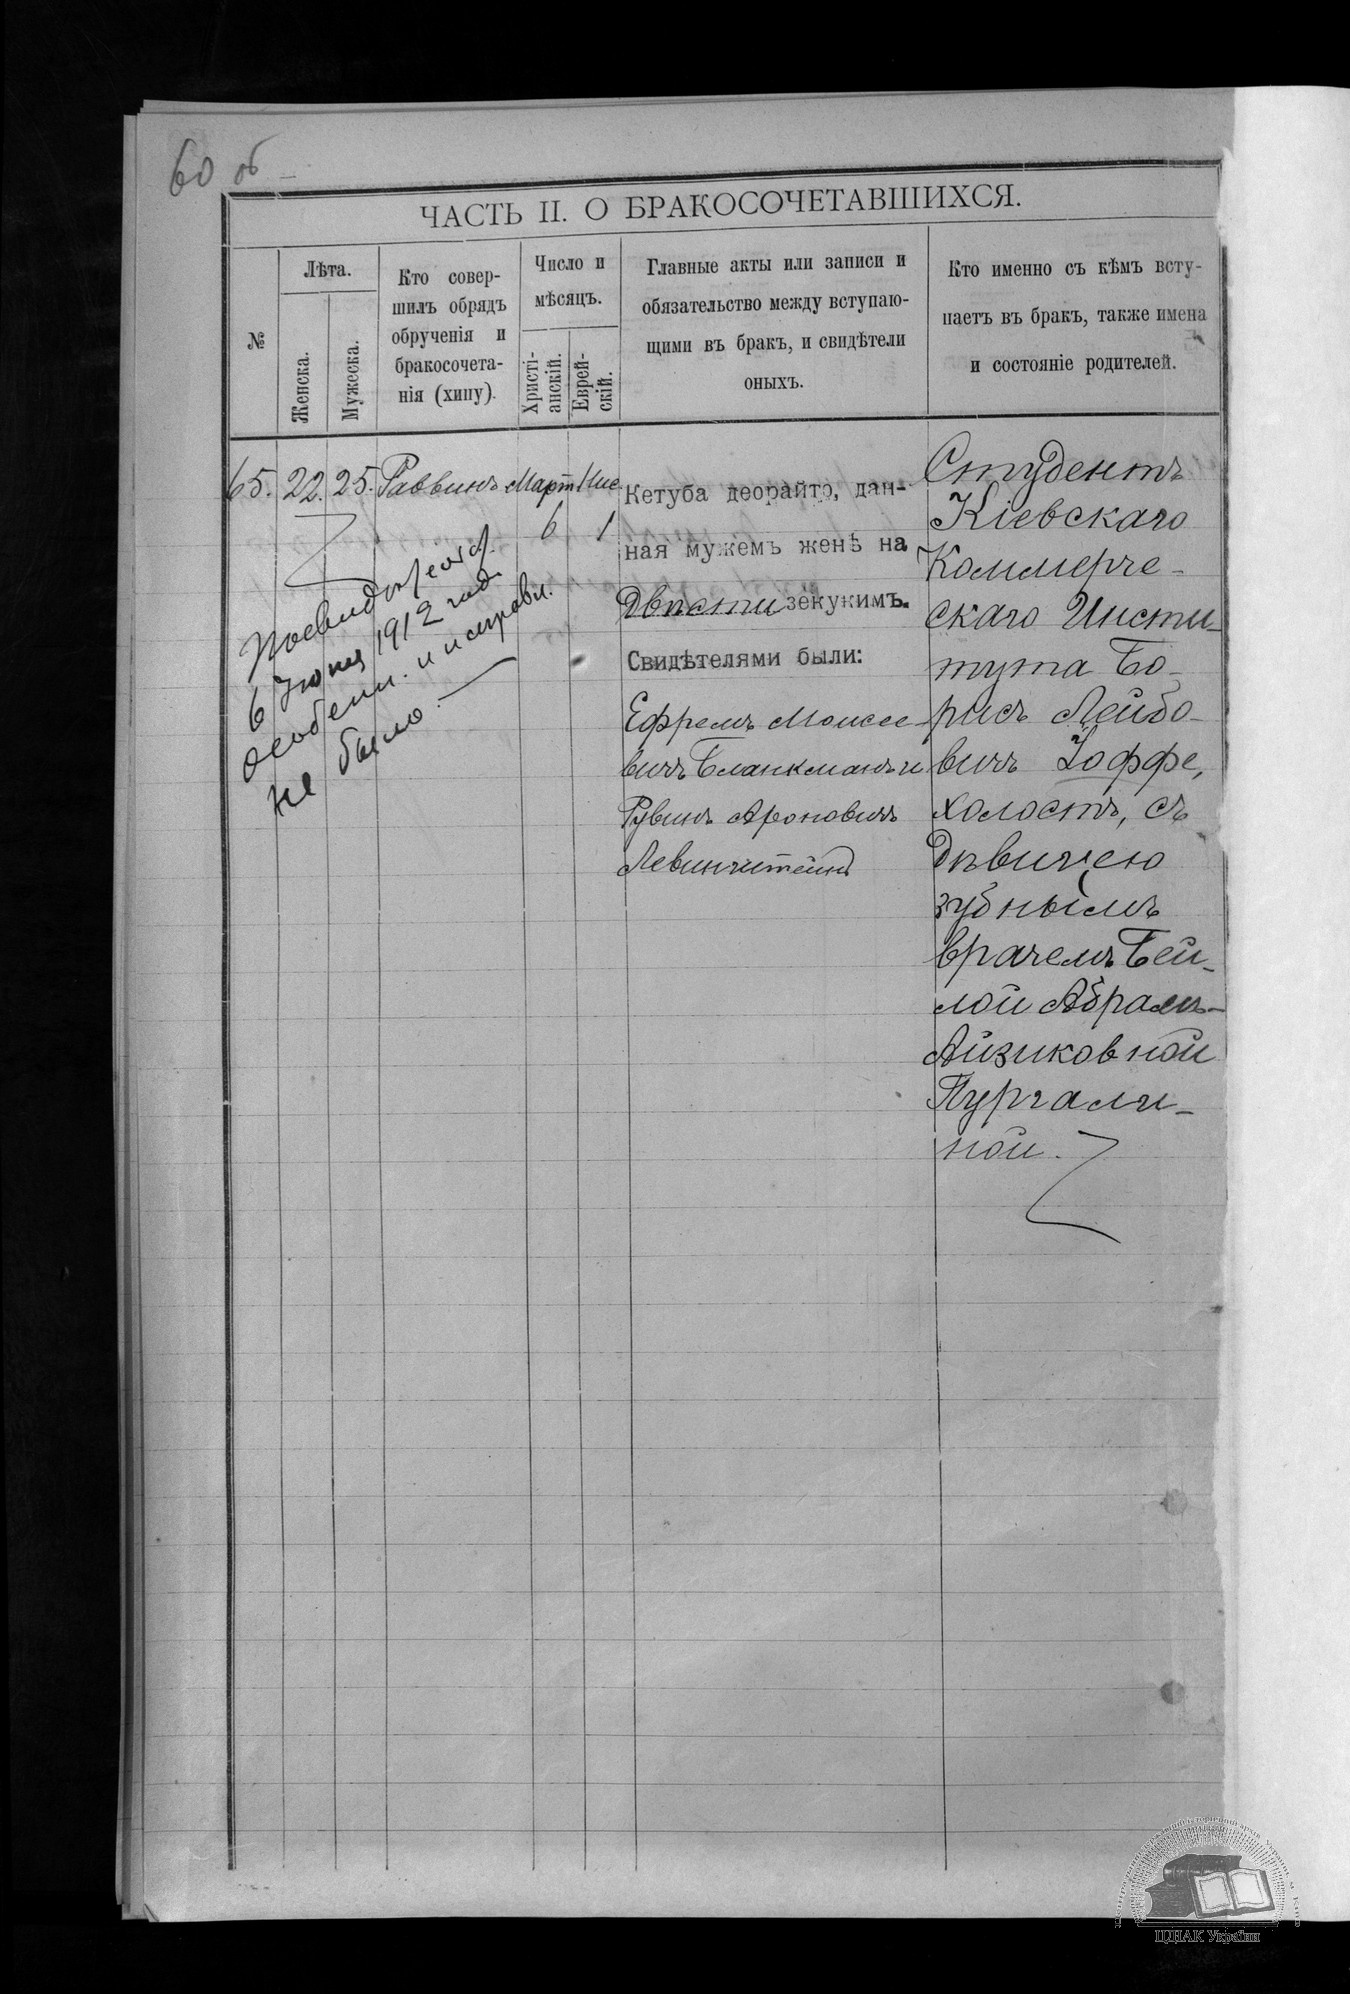 60 об
ЧАСТЬ II. О БРАКОСОЧЕТАВШИХСЯ.
№
Лѣта.
Женска.
Мужеска.
Кто совер-
шилъ обрядъ
обрученія и
бракосочета-
нія (хипу).
Число и
мѣсяцъ.
Христі-
анскій.
Еврей-
скій.
Главные акты или записи и
обязательство между вступаю-
щими въ бракъ, и свидѣтели
оныхъ.
Кто именно съ кѣмъ всту-
паетъ въ бракъ, также имена
и состояніе родителей.
65.
22.
25.
Раввинъ
Март
6
Нис.
1
Кетуба деорайто, дан-
ная мужемъ женѣ на
Двѣсти зекукимъ.
Свидѣтелями были:
Ефремъ Моисее-
вичъ Бланкманъ и
Рувинъ Ароновичъ
Левинштейнъ
Студентъ
Кіевскаго
Коммерче-
скаго Инсти-
тута Бо-
рисъ Лейбо-
вичъ Іоффе,
холостъ, съ
Дѣвицею
зубнымъ
врачемъ Бей-
лой Абрамъ-
Айзиковной
Пургали-
ной.
6 Іюня 1912 год.
особенн. и исправл.
не было.
ЦДІАК України